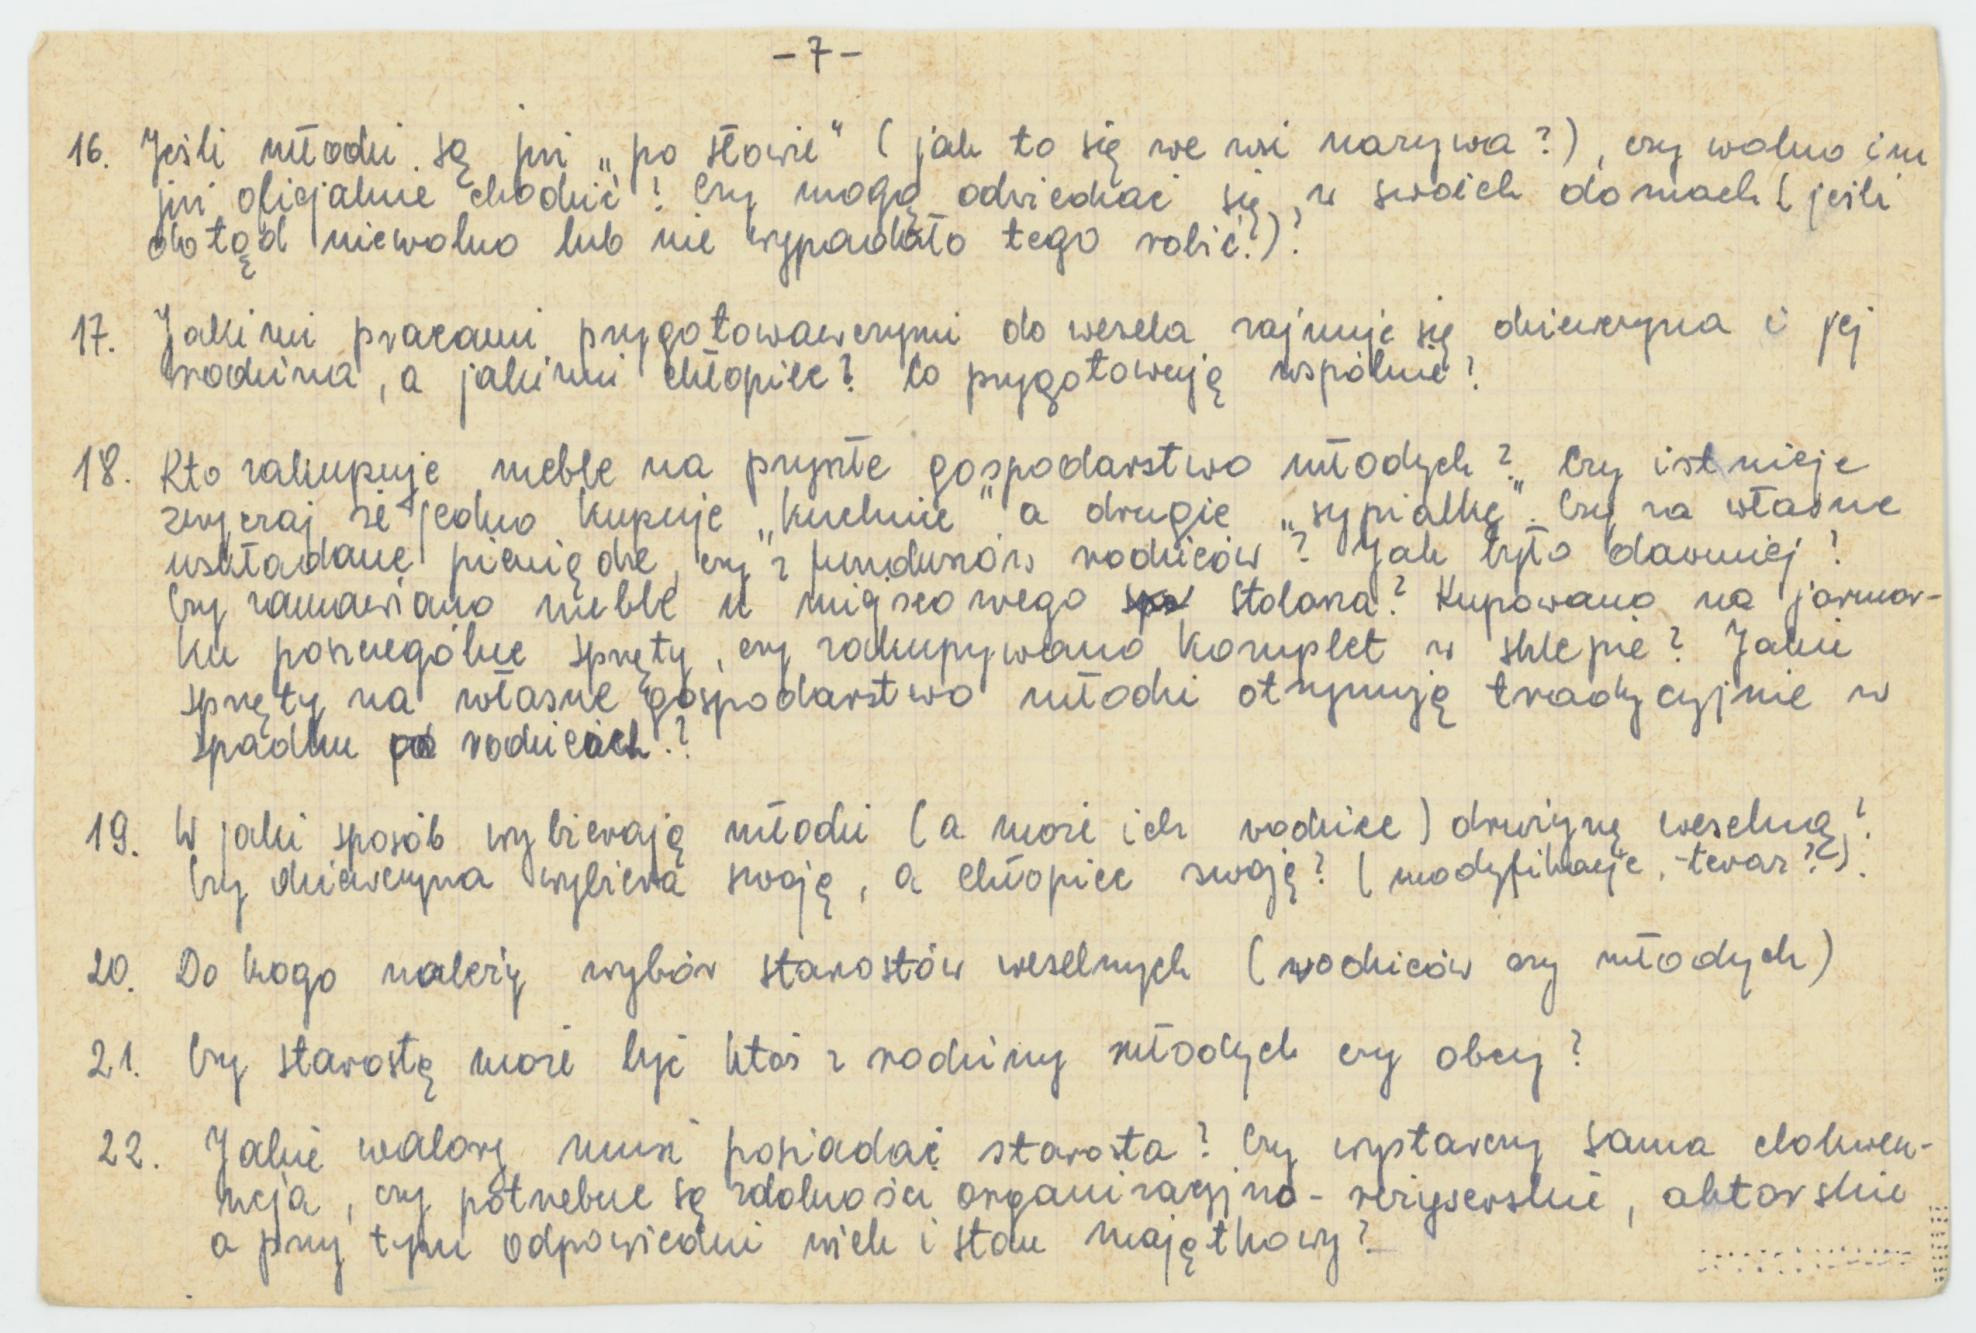 -7-
16. Jeśli młodzi są już „po słowie" (jak to się we wsi nazywa?), czy wolno im
już oficjalnie chodzić? Czy mogą odwiedzać się w swoich domach (jeśli
dotąd niewolno lub nie wypadało tego robić?)?
17. Jakimi pracami przygotowawczymi do wesela zajmuje się dziewczyna i jej
rodzina, a jakimi chłopiec? Co przygotowują wspólnie?
18. Kto zakupuje meble na przyszłe gospodarstwo młodych? Czy istnieje
zwyczaj że jedno kupuje „kuchnie" a drugie „sypialkę". Czy za własne
uskładane pieniądze, czy z funduszów rodziców? Jak było dawniej?
Czy zamawiano meble u miejscowego stolarza? Kupowano na jarmar-
ku poszczególne sprzęty, czy zakupywano komplet w sklepie? Jakie
sprzęty na własne gospodarstwo młodzi otrzymują tradycyjnie w
spadku po rodzicach.?
19. W jaki sposób wybierają młodzi (a może ich rodzice) drużynę weselną?
Czy dziewczyna wybiera swoją, a chłopiec swoją? (modyfikacje, -teraz?).
20. Do kogo należy wybór starostów weselnych (rodziców czy młodych)
21. Czy starostą może być ktoś z rodziny młodych czy obcy?
22. Jakie walory musi posiadać starosta? Czy wystarczy sama elokwen-
ncja, czy potrzebne są zdolności organizacyjno-reżyserskie, aktorskie
a przy tym odpowiedni wiek i stan majątkowy?